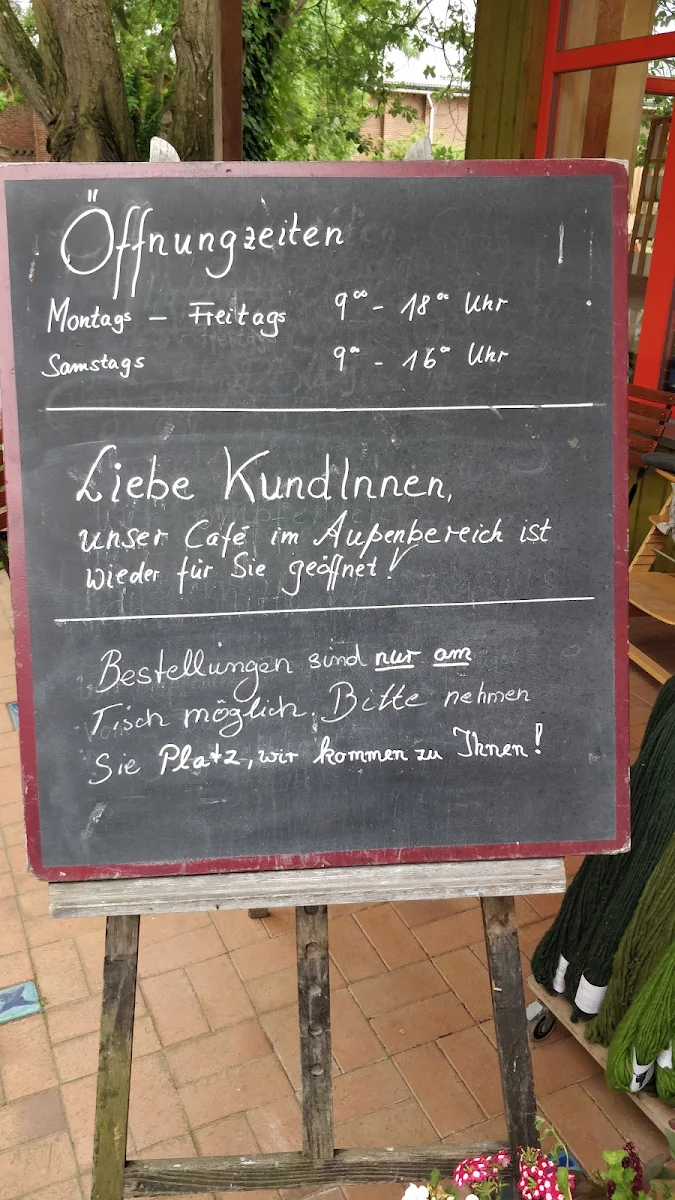 Öffnungzeiten
Montags - Freitags 9⁰⁰ - 18⁰⁰ Uhr
Samstags 9⁰⁰ - 16⁰⁰ Uhr
Liebe KundInnen,
unser Café im Außenbereich ist
wieder für Sie geöffnet!
Bestellungen sind nur am
Tisch möglich. Bitte nehmen
Sie Platz, wir kommen zu Ihnen!